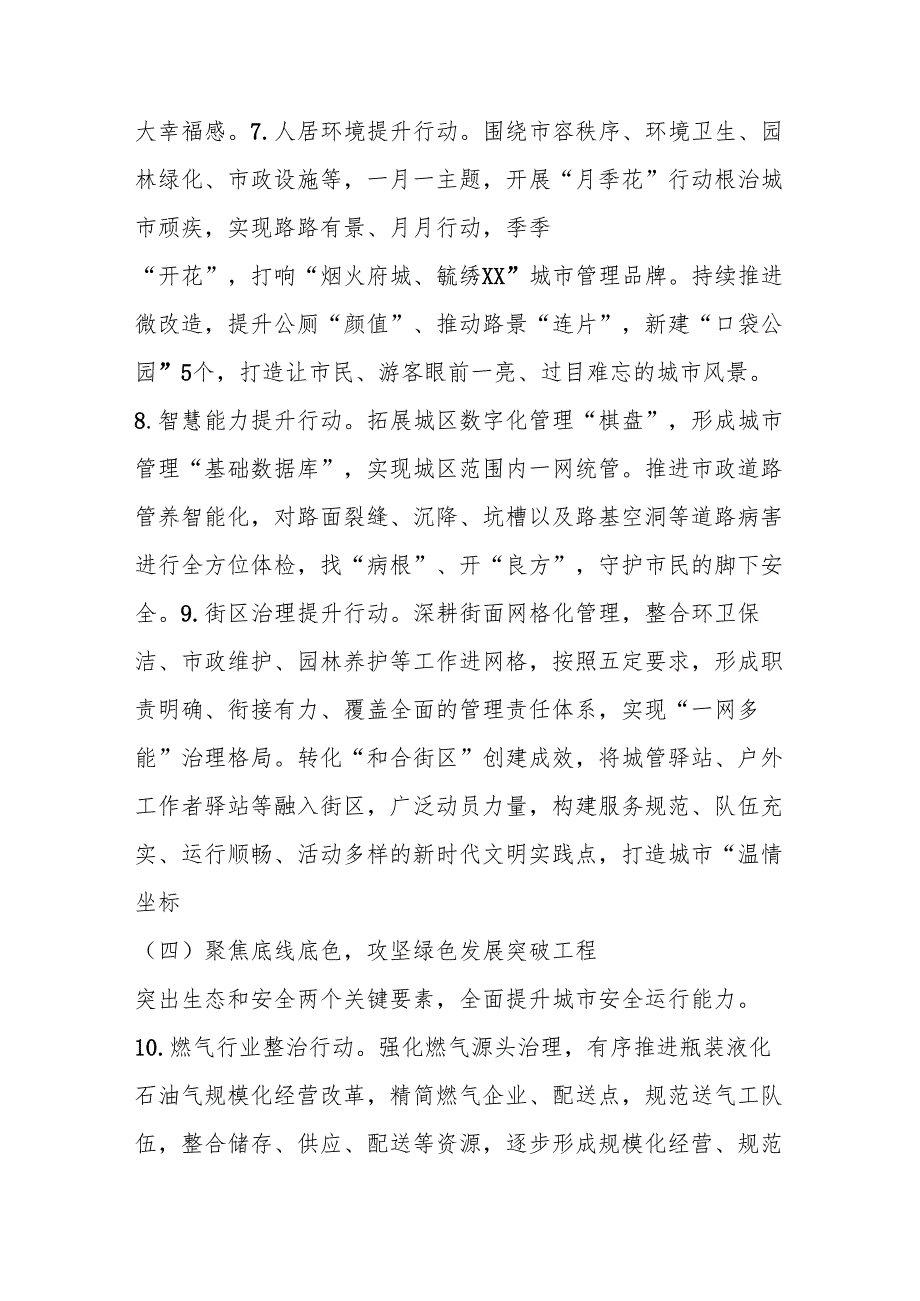 大幸福感。7.人居环境提升行动。围绕市容秩序、环境卫生、园
林绿化、市政设施等，一月一主题，开展“月季花”行动根治城
市顽疾，实现路路有景、月月行动，季季
“开花”，打响“烟火府城、毓绣XX”城市管理品牌。持续推进
微改造，提升公厕“颜值”、推动路景“连片”，新建“口袋公
园”5个，打造让市民、游客眼前一亮、过目难忘的城市风景。
8.智慧能力提升行动。拓展城区数字化管理“棋盘”，形成城市
管理“基础数据库”，实现城区范围内一网统管。推进市政道路
管养智能化，对路面裂缝、沉降、坑槽以及路基空洞等道路病害
进行全方位体检，找“病根”、开“良方”，守护市民的脚下安
全。9.街区治理提升行动。深耕街面网格化管理，整合环卫保
洁、市政维护、园林养护等工作进网格，按照五定要求，形成职
责明确、衔接有力、覆盖全面的管理责任体系，实现“一网多
能”治理格局。转化“和合街区”创建成效，将城管驿站、户外
工作者驿站等融入街区，广泛动员力量，构建服务规范、队伍充
实、运行顺畅、活动多样的新时代文明实践点，打造城市“温情
坐标
（四）聚焦底线底色，攻坚绿色发展突破工程
突出生态和安全两个关键要素，全面提升城市安全运行能力。
10.燃气行业整治行动。强化燃气源头治理，有序推进瓶装液化
石油气规模化经营改革，精简燃气企业、配送点，规范送气工队
伍，整合储存、供应、配送等资源，逐步形成规模化经营、规范